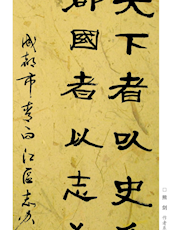 天下者以史
郡國者以志
成都市青白江区志办